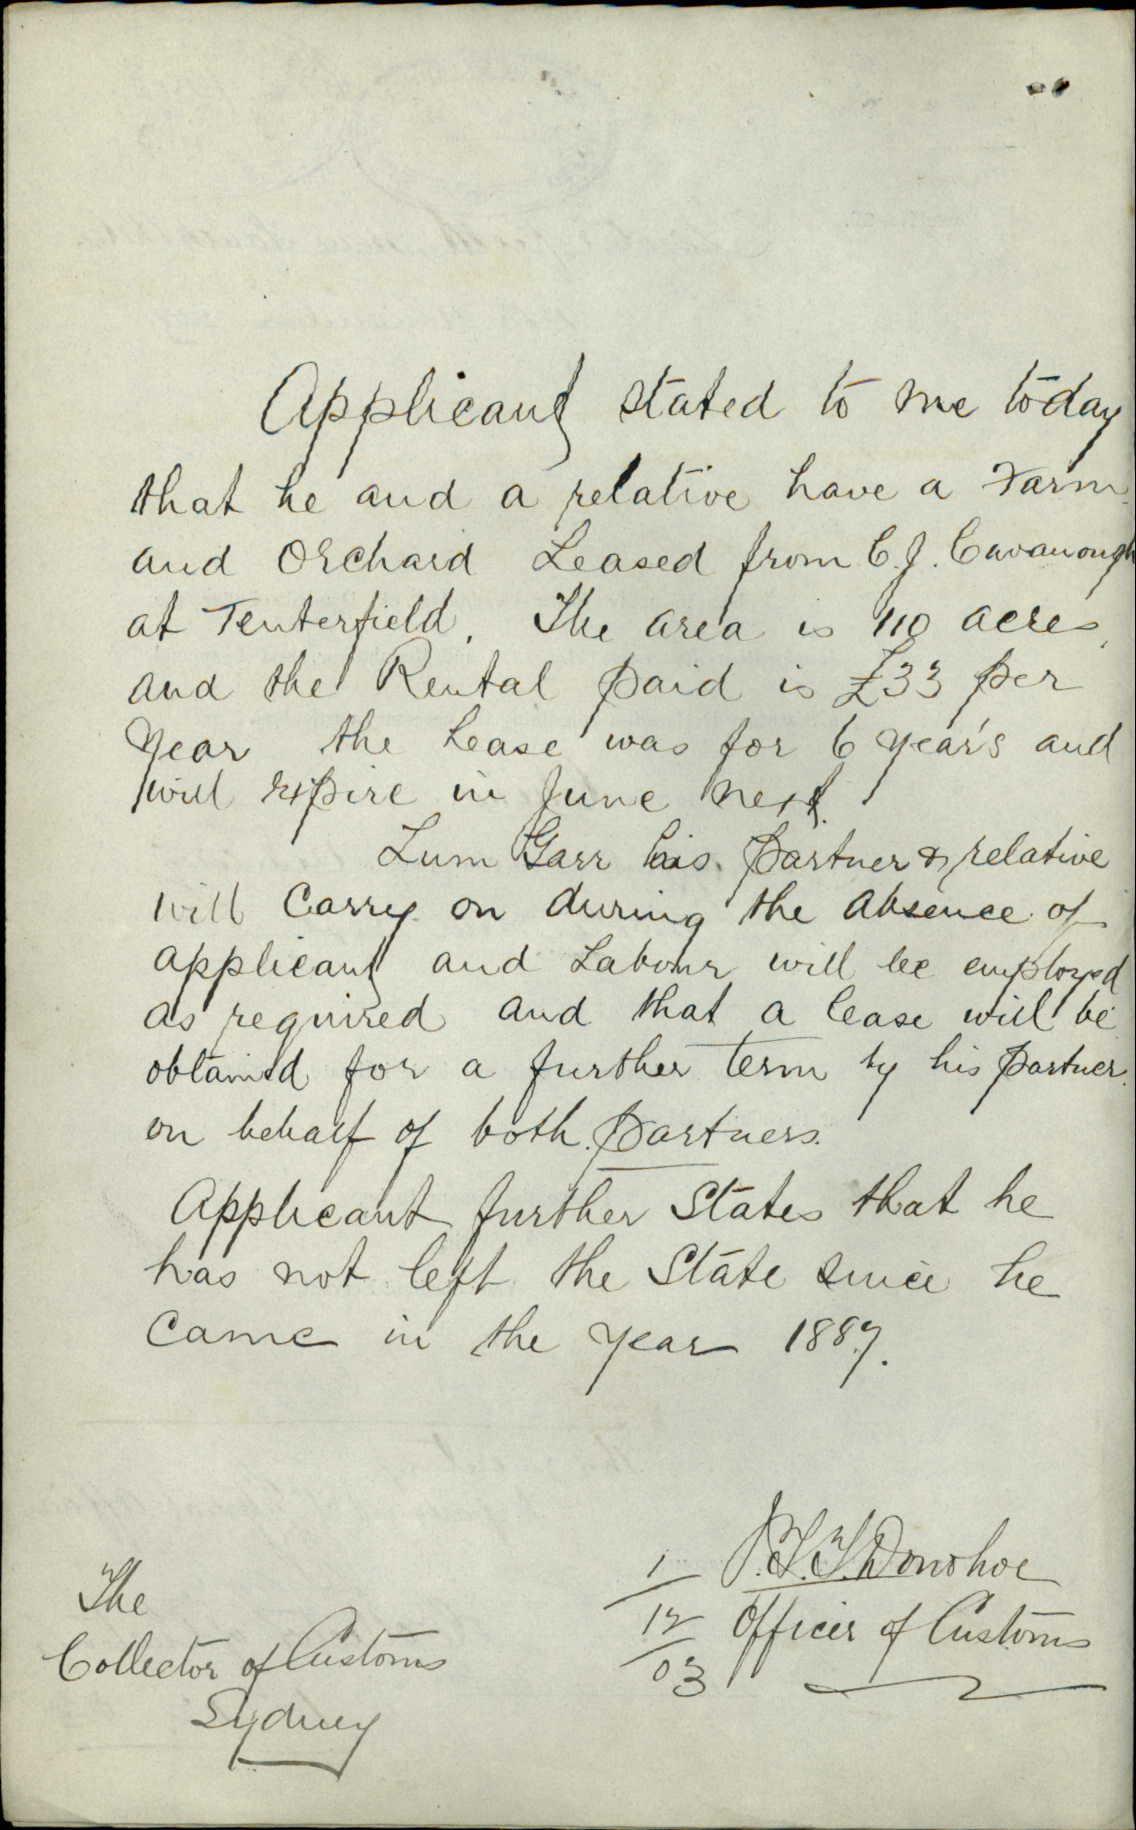 Applicant stated to me today
that he and a relative have a Farm
and Orchard Leased from C. J. Cavanough
at Tenterfield. The area is 110 acres,
and the Rental paid is £33 per
Year the Lease was for 6 year's and
will expire in June next.
Lum Garr his partner & relative
will Carry on during the absence of
applicant and Labour will be employed
as required and that a lease will be
obtained for a further term by his partner.
on behalf of both partners.
Applicant further States that he
has not left the State since he
Came in the year 1887.
The
Collector of Customs
Sydney
1/12/03
J.F.T. Donohoe
Officer of Customs